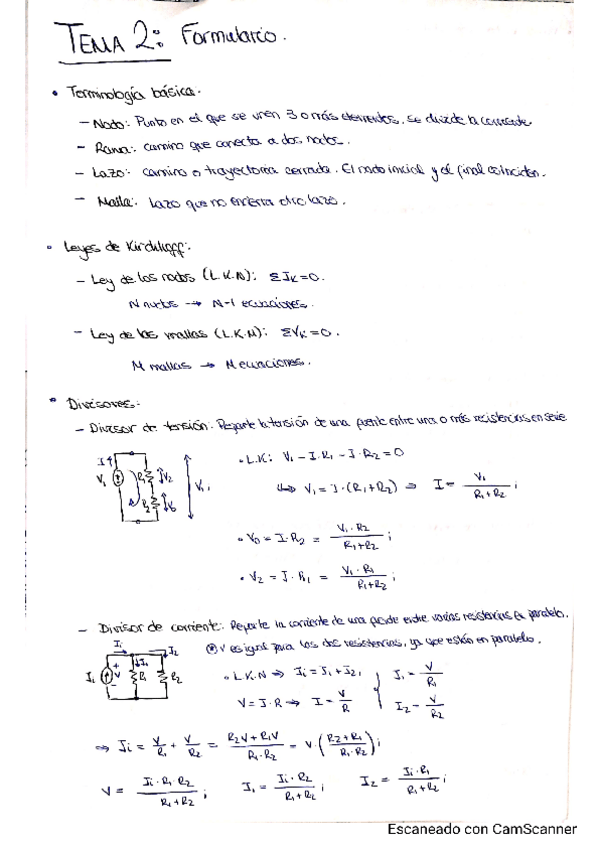 TEMA 2: Formulario.
• Terminología básica.
– Nodo: Punto en el que se unen 3 o más elementos, se divide la corriente
– Rama: camino que conecta a dos nodos.
– Lazo: camino o trayectoria cerrada. El nodo inicial y el final coinciden.
– Malla: Lazo que no encierra otro lazo.
• Leyes de Kirchhoff:
– Ley de los nodos (L.K.N): ΣIK=0.
N nudos → N-1 ecuaciones.
– Ley de las mallas (L.K.M): ΣVK=0.
M mallas → M ecuaciones.
• Divisores.
– Divisor de tensión. Reparte la tensión de una fuente entre una o más resistencias en serie
I V1 R1 V2 R2 V0 V1
• L.K: V1 - I·R1 - I·R2 = 0
↳ V1 = I·(R1+R2) ⇒ I = V1 / (R1+R2);
• V0 = I·R2 = V1·R2 / (R1+R2);
• V2 = I·R1 = V1·R1 / (R1+R2);
– Divisor de corriente: Reparte la corriente de una fuente entre varias resistencias en paralelo.
* V es igual para las dos resistencias, ya que están en paralelo.
Ii Ii + V - I1 R1 I2 R2
• L.K.N ⇒ Ii = I1 + I2; { I1 = V/R1
V = I·R ⇒ I = V/R { I2 = V/R2
⇒ Ii = V/R1 + V/R2 = (R2V + R1V) / (R1·R2) = V·((R2+R1) / (R1·R2));
V = Ii·R1·R2 / (R1+R2); I1 = Ii·R2 / (R1+R2); I2 = Ii·R1 / (R1+R2);
Escaneado con CamScanner